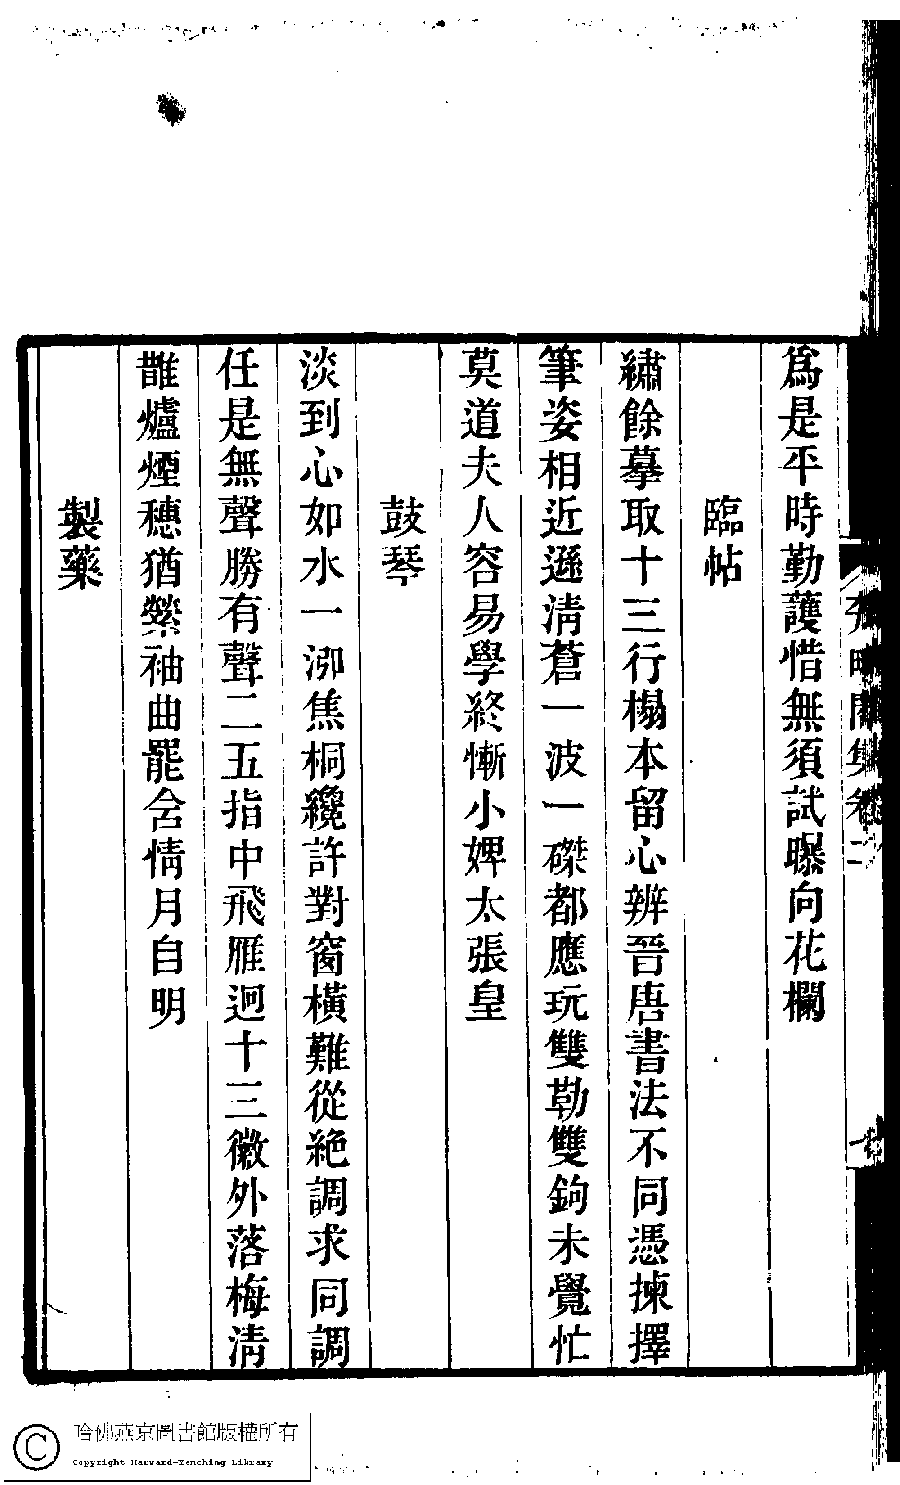 爲是平時勤護惜無須試曝向花欄
臨帖
繡餘摹取十三行榻本留心辨晉唐書法不同憑揀擇
筆姿相近遜淸蒼一波一磔都應玩雙勒雙鉤未覺忙
莫道夫人容易學終慚小婢太張皇
鼓琴
淡到心如水一泖焦桐纔許對窗橫難從絕調求同調
任是無聲勝有聲二五指中飛雁迥十三徽外落梅淸
爐煙穗猶縈袖曲罷含情月自明
製藥
集卷二
哈佛燕京圖書館版權所有
Copyright Harvard-Yenching Library